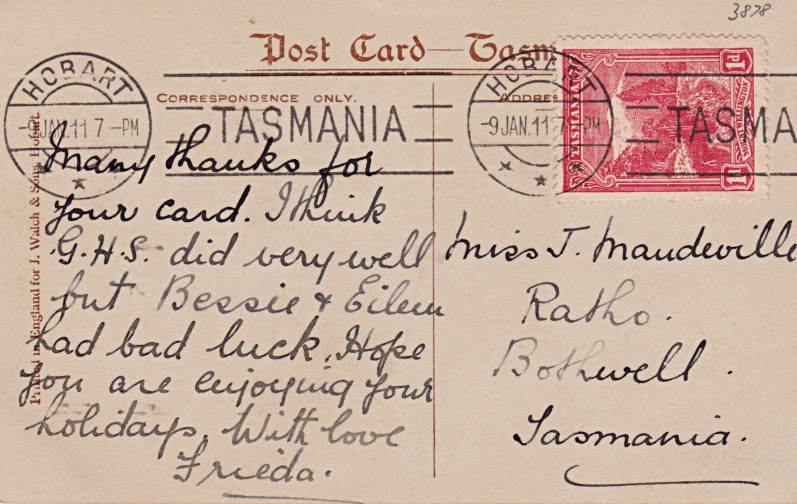 3878
Post Card — Tasm
CORRESPONDENCE ONLY.
ADDRE
HOBART
-9 JAN. 11 7 -PM
TASMANIA
HOBART
-9 JAN. 11 7 PM
TASMA
TASMANIA
1d
1d
Many thanks for
your card. I think
G.H.S. did very well
but Bessie & Eileen
had bad luck. Hope
you are enjoying your
holidays. With love
Frieda.
Miss J. Maudeville
Ratho.
Bothwell.
Tasmania.
Printed in England for J. Walch & Sons, Hobart